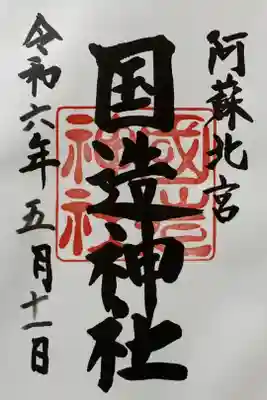 阿蘇北宮
国造神社
國造神社
令和六年五月十一日